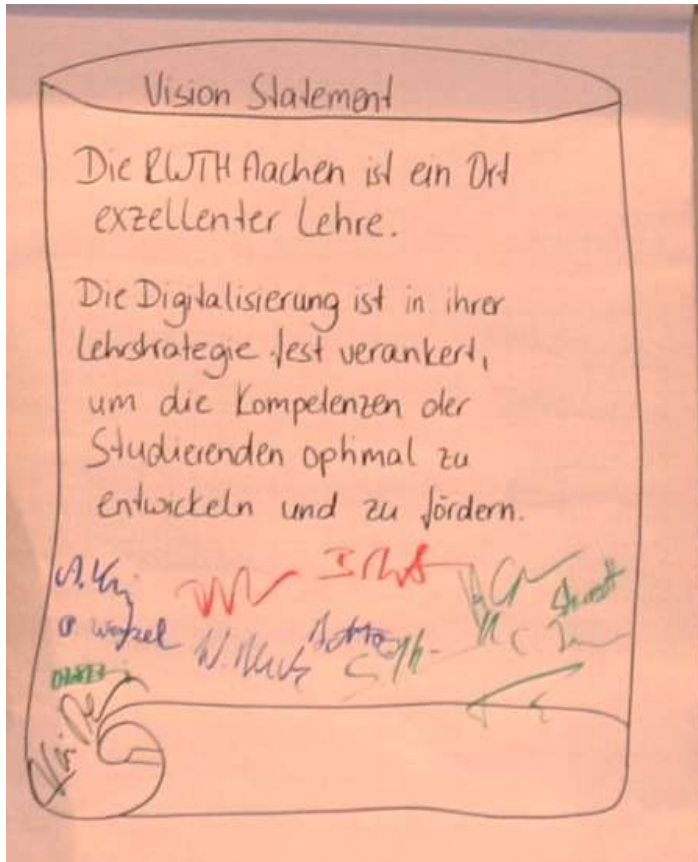 Vision Statement
Die RWTH Aachen ist ein Ort
exzellenter Lehre.
Die Digitalisierung ist in ihrer
Lehrstrategie fest verankert,
um die Kompetenzen der
Studierenden optimal zu
entwickeln und zu fördern.